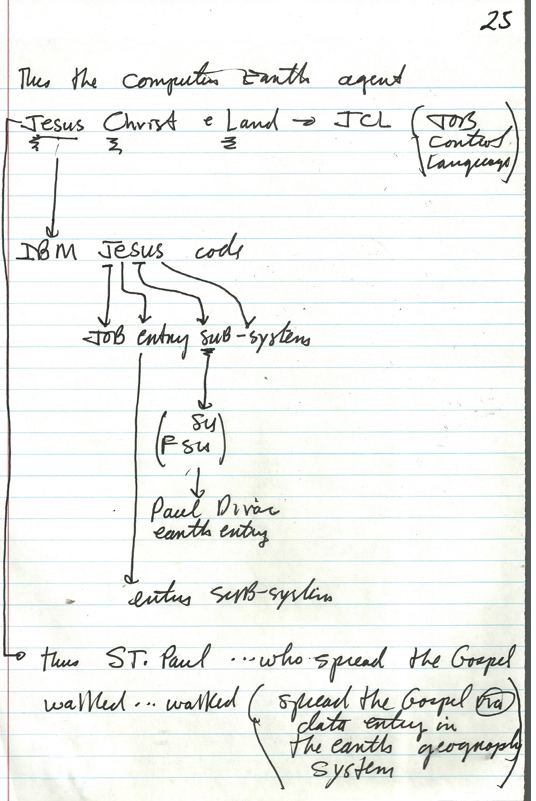 25
Thus the computer Earth agent
Jesus Christ e Land → JCL (JOB
Control
Language)
IBM Jesus code
JOB entry suB-systems
(Su
Fsu)
Paul
earth entry
enters suB-system
thus ST. Paul ... who spread the Gospel
walked ... walked (spread the Gospel via
data entry in
the earth geography
system)